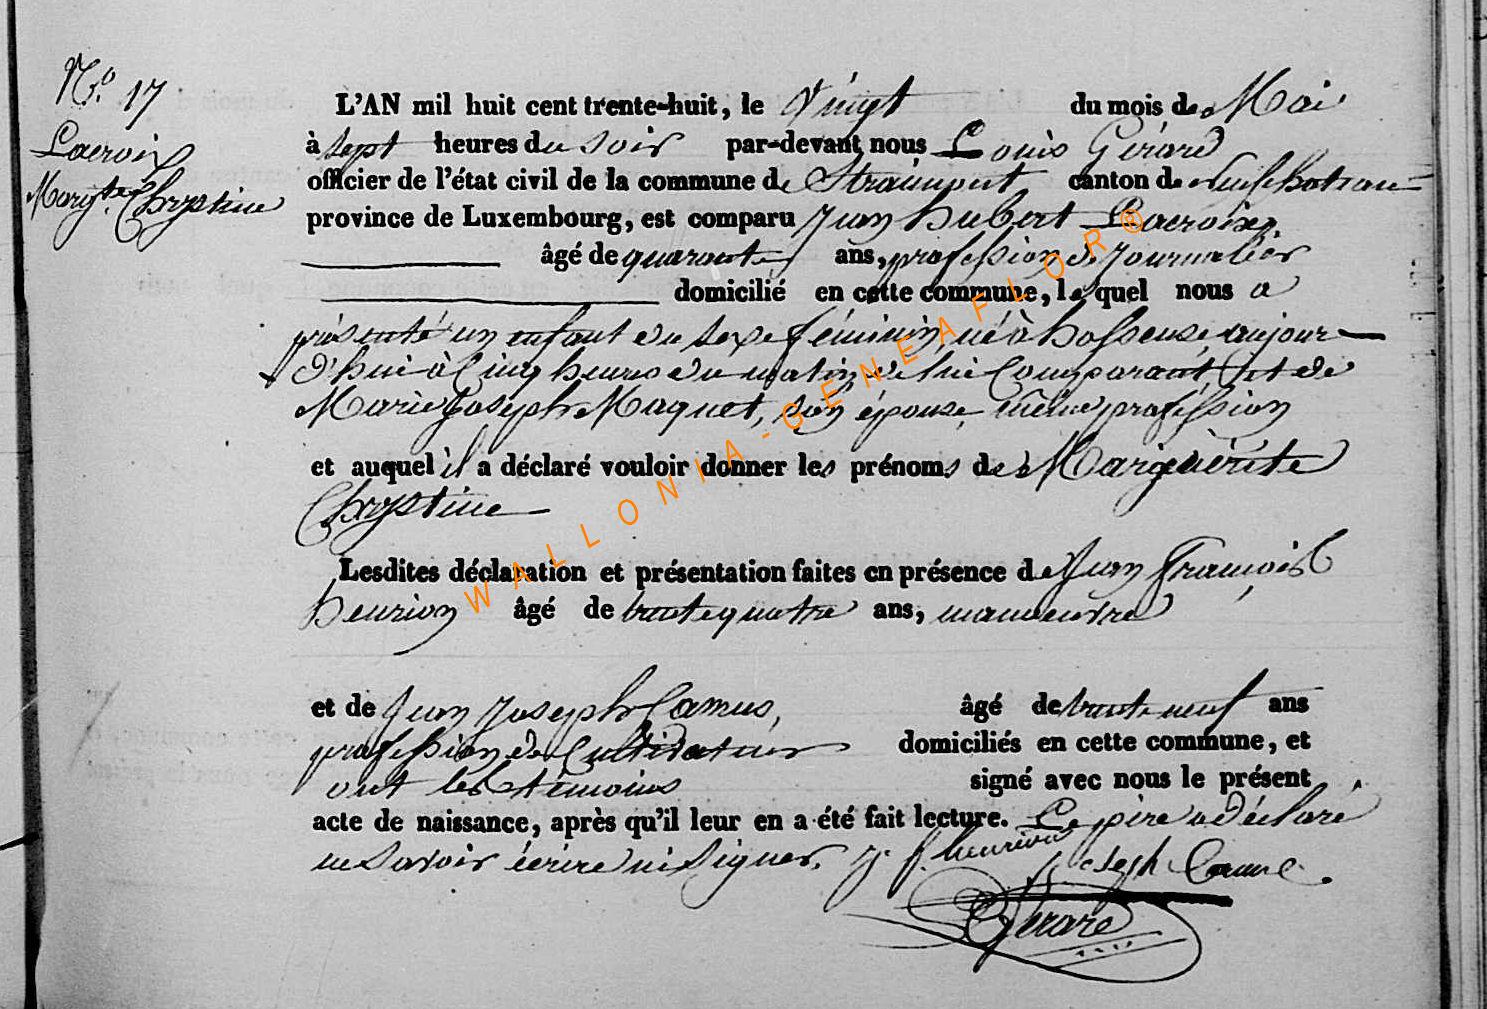 N.° 17
Lacroix
Margte. Chrystine
L'AN mil huit cent trente-huit, le Vingt du mois de Mai
à sept heures du soir par-devant nous Louis Gérard
officier de l'état civil de la commune de Straimont canton de Neufchateau
province de Luxembourg, est comparu Jean hubert Lacroix,
âgé de quarante ans, profession de Journalier
domicilié en cette commune, lequel nous a
présenté un enfant du sexe féminin, né à hosseuse aujour
d'hui à Cinq heures du matin de lui Comparant, et de
Marie Joseph Maquet, son épouse, même profession
et auquel il a déclaré vouloir donner les prénoms de Marguèrite
Chrystine
Lesdites déclaration et présentation faites en présence de Jean François
henrion âgé de trente quatre ans, manoeuvre
et de Jean Joseph Camus, âgé de trente neuf ans
profession de Cultivateur domiciliés en cette commune, et
ont les témoins signé avec nous le présent
acte de naissance, après qu'il leur en a été fait lecture. Le père a déclaré
ne savoir écrire ni signer. J. f. henrion
Joseph Camus
Gérard
WALLONIA-GENEAFLOR®